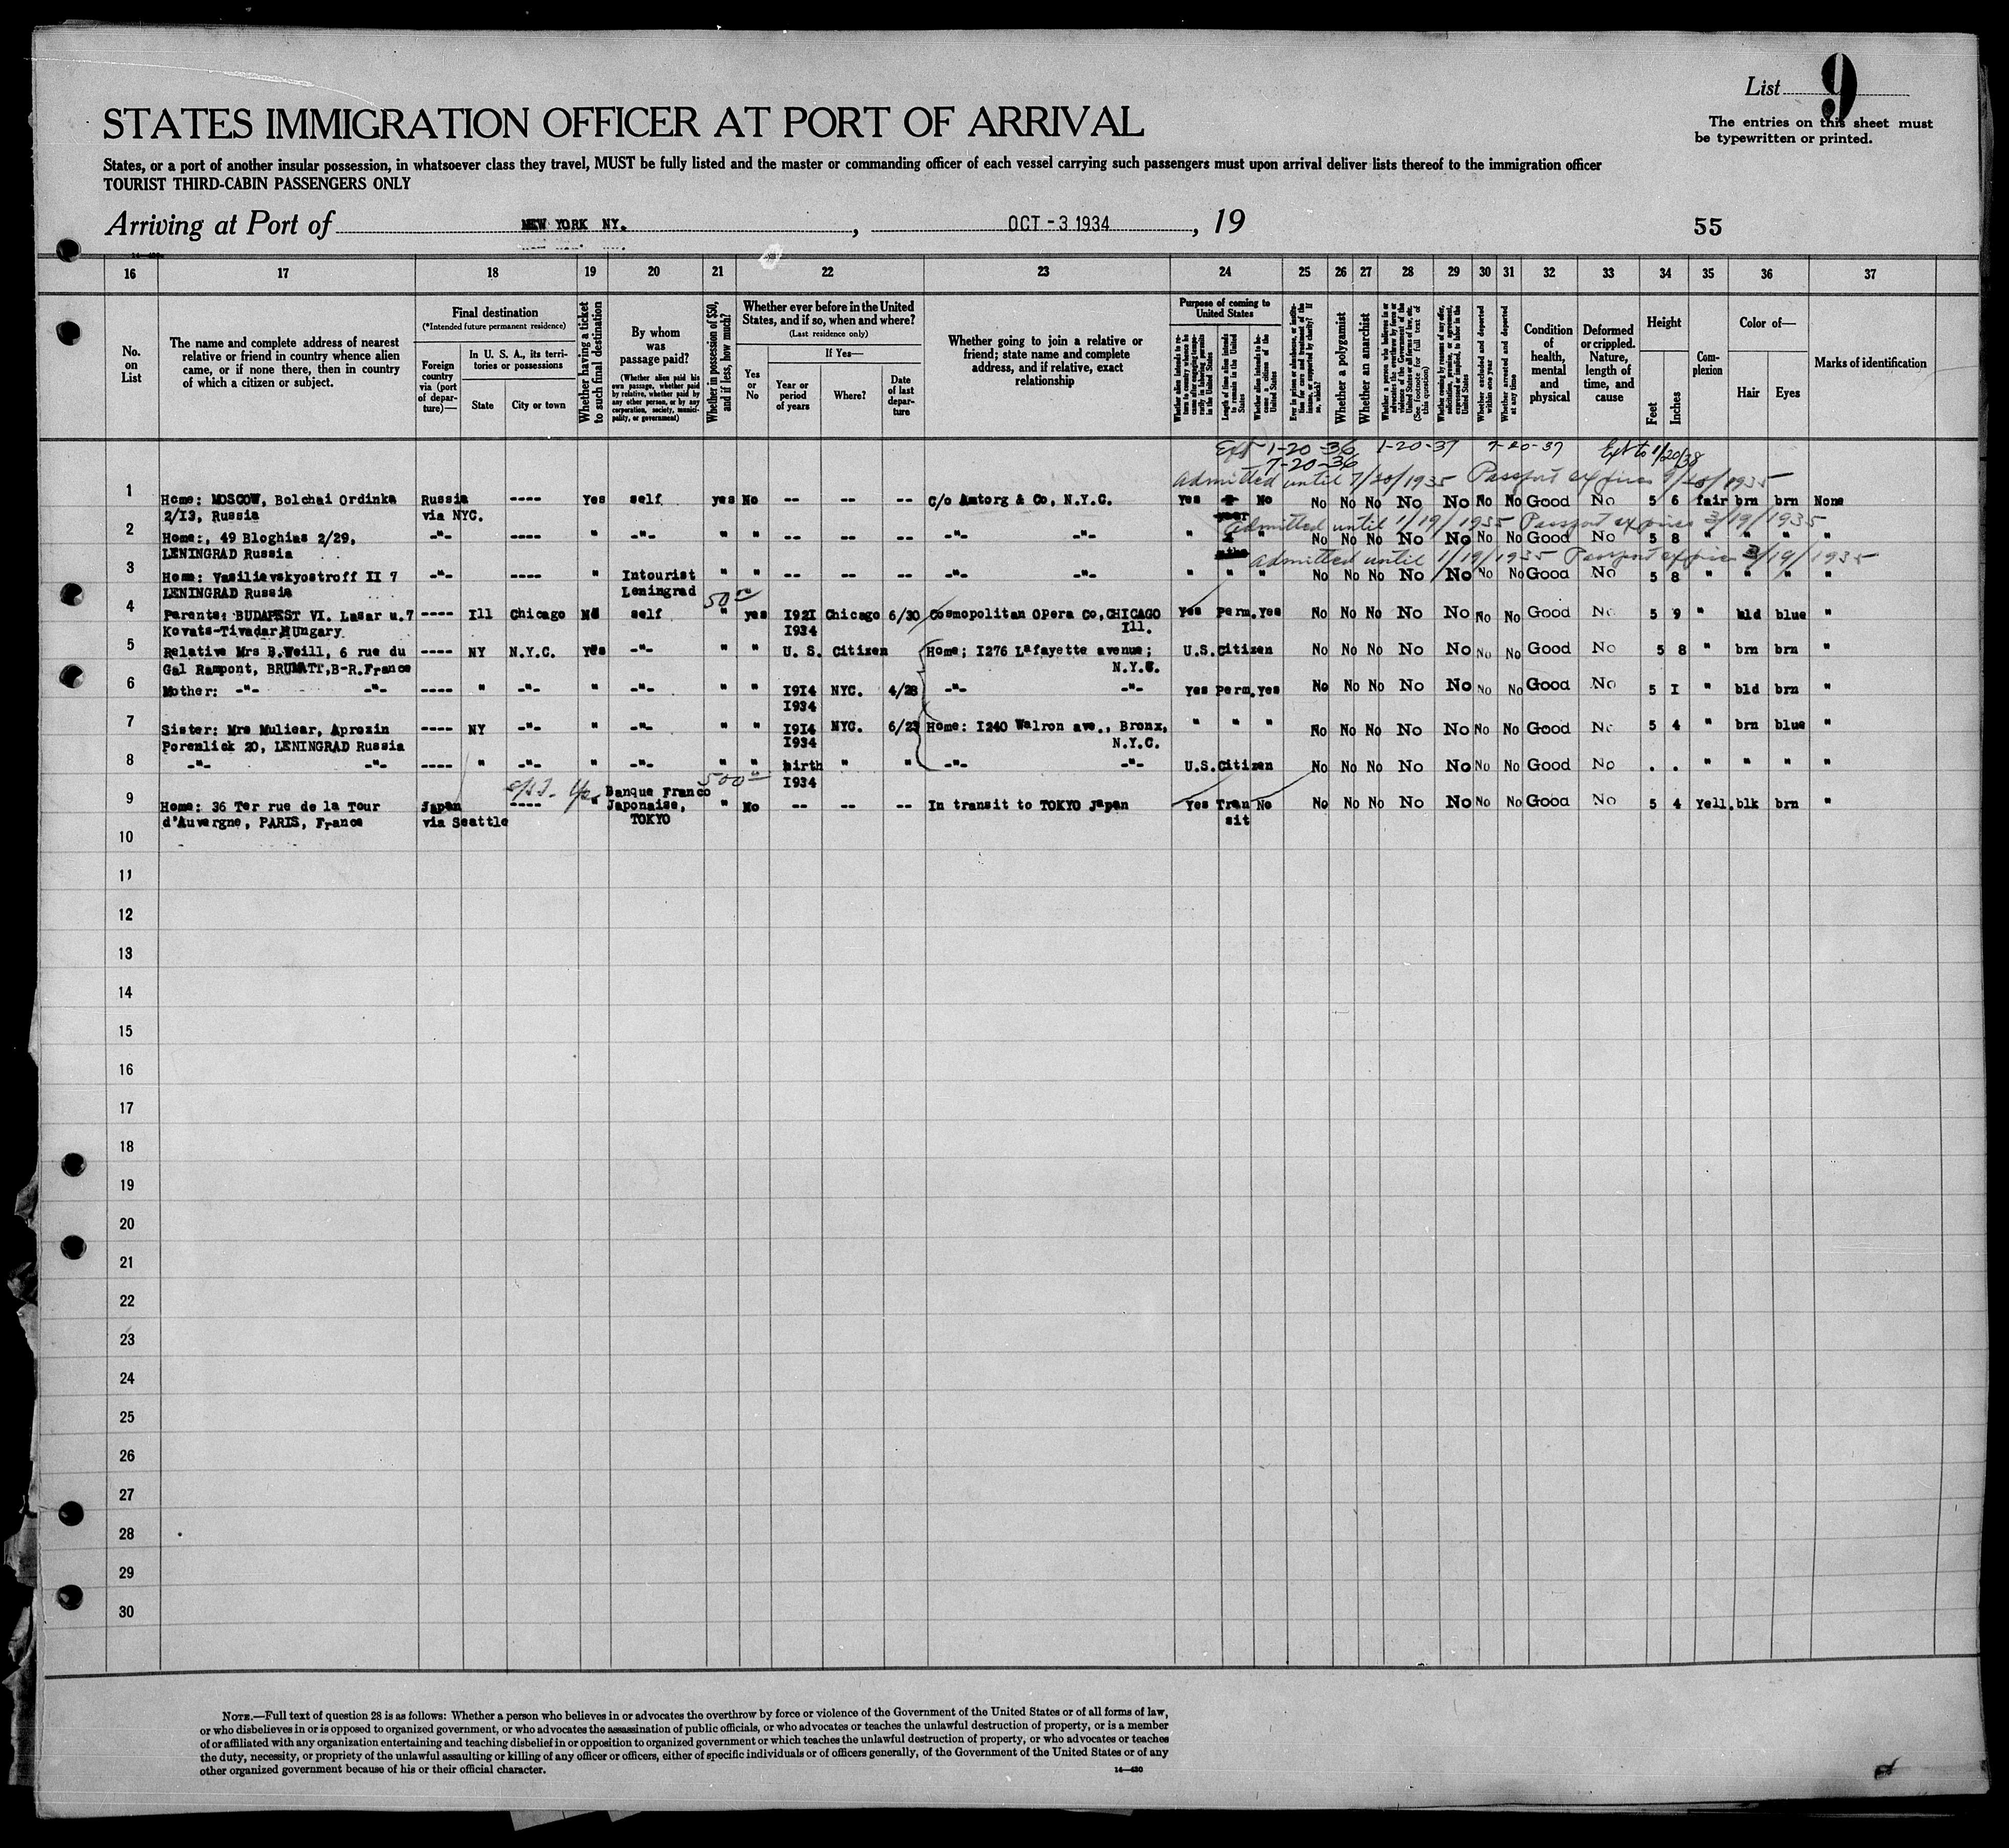 List 9
The entries on this sheet must
be typewritten or printed.
STATES IMMIGRATION OFFICER AT PORT OF ARRIVAL
States, or a port of another insular possession, in whatsoever class they travel, MUST be fully listed and the master or commanding officer of each vessel carrying such passengers must upon arrival deliver lists thereof to the immigration officer
TOURIST THIRD-CABIN PASSENGERS ONLY
Arriving at Port of NEW YORK NY. , OCT - 3 1934 , 19 55
16 17 18 19 20 21 22 23 24 25 26 27 28 29 30 31 32 33 34 35 36 37
No. on List
The name and complete address of nearest relative or friend in country whence alien came, or if none there, then in country of which a citizen or subject.
Final destination
(*Intended future permanent residence)
Foreign country via (port of departure)—
In U. S. A., its territories or possessions
State
City or town
Whether having a ticket to such final destination
By whom was passage paid?
(Whether alien paid his own passage, whether paid by relative, whether paid by any other person, or by any corporation, society, municipality, or government)
Whether in possession of $50, and if less, how much?
Whether ever before in the United States, and if so, when and where?
(Last residence only)
Yes or No
If Yes—
Year or period of years
Where?
Date of last departure
Whether going to join a relative or friend; state name and complete address, and if relative, exact relationship
Purpose of coming to United States
Length of time alien intends to remain in the United States
Whether alien intends to become a citizen of the United States
Whether a polygamist
Whether an anarchist
(See footnote for full text of this question)
Whether excluded and deported within one year
Whether arrested and deported at any time
Condition of health, mental and physical
Deformed or crippled. Nature, length of time, and cause
Height
Feet
Inches
Complexion
Color of—
Hair
Eyes
Marks of identification
Ext 1-20-36 1-20-37 7-20-37 Ext to 1/20/38
7-20-36
Admitted until 7/20/1935 Passport expires 9/20/1935
1 Home: MOSCOW, Bolchai Ordinka Russia ---- Yes self yes No -- -- -- C/o Amtorg & Co, N.Y.C. Yes No No No No No No No No Good No 5 6 fair brn brn None
2/I3, Russia via NYC. year
Admitted until 1/19/1935 Passport expires 3/19/1935
2 Home:, 49 Bloghias 2/29, -"- ---- " -"- " " -- -- -- -"- -"- " " No No No No No No No Good No 5 8 " " " "
LENINGRAD Russia mths
Admitted until 1/19/1935 Passport expires 3/19/1935
3 Home: Vasilievskyostroff II 7 -"- ---- " Intourist " " -- -- -- -"- -"- " " " No No No No No No No Good No 5 8 " " " "
LENINGRAD Russia Leningrad
50
4 Parents: BUDAPEST VI. Lasar u.7 ---- Ill Chicago No self " yes I92I Chicago 6/30 Cosmopolitan Opera Co, CHICAGO Yes Perm. Yes No No No No No No No Good No 5 9 " bld blue "
Kovats-Tivadar HUngary I934 Ill.
5 Relative Mrs B.Weill, 6 rue du ---- NY N.Y.C. Yes -"- " " U. S. Citizen Home; I276 Lafayette avenue; U.S.Citizen No No No No No No No Good No 5 8 " brn brn "
Gal Rampont, BRUMATT,B-R.France N.Y.C.
6 Mother: -"- -"- ---- " -"- " -"- " " I9I4 NYC. 4/28 -"- -"- Yes Perm. Yes No No No No No No No Good No 5 I " bld brn "
I934
7 Sister: Mrs Muliear, Aprexin ---- NY -"- " -"- " " I9I4 NYC. 6/23 Home: I240 Walron ave., Bronx, " " " No No No No No No No Good No 5 4 " brn blue "
Porenlick 20, LENINGRAD Russia I934 N.Y.C.
8 -"- -"- ---- " -"- " -"- " " birth " " -"- -"- U.S.Citizen No No No No No No No Good No . . " " " "
I934
500
9 Home: 36 Ter rue de la Tour Japan ---- " Banque Franco Japonaise, " No -- -- -- In transit to TOKYO Japan Yes Tran No No No No No No No No Good No 5 4 Yell. blk brn "
d'Auvergne, PARIS, France via Seattle TOKYO sit
10
11
12
13
14
15
16
17
18
19
20
21
22
23
24
25
26
27
28
29
30
NOTE.—Full text of question 28 is as follows: Whether a person who believes in or advocates the overthrow by force or violence of the Government of the United States or of all forms of law,
or who disbelieves in or is opposed to organized government, or who advocates the assassination of public officials, or who advocates or teaches the unlawful destruction of property, or is a member
of or affiliated with any organization entertaining and teaching disbelief in or opposition to organized government or which teaches the unlawful destruction of property, or who advocates or teaches
the duty, necessity, or propriety of the unlawful assaulting or killing of any officer or officers, either of specific individuals or of officers generally, of the Government of the United States or of any
other organized government because of his or their official character.
14—430